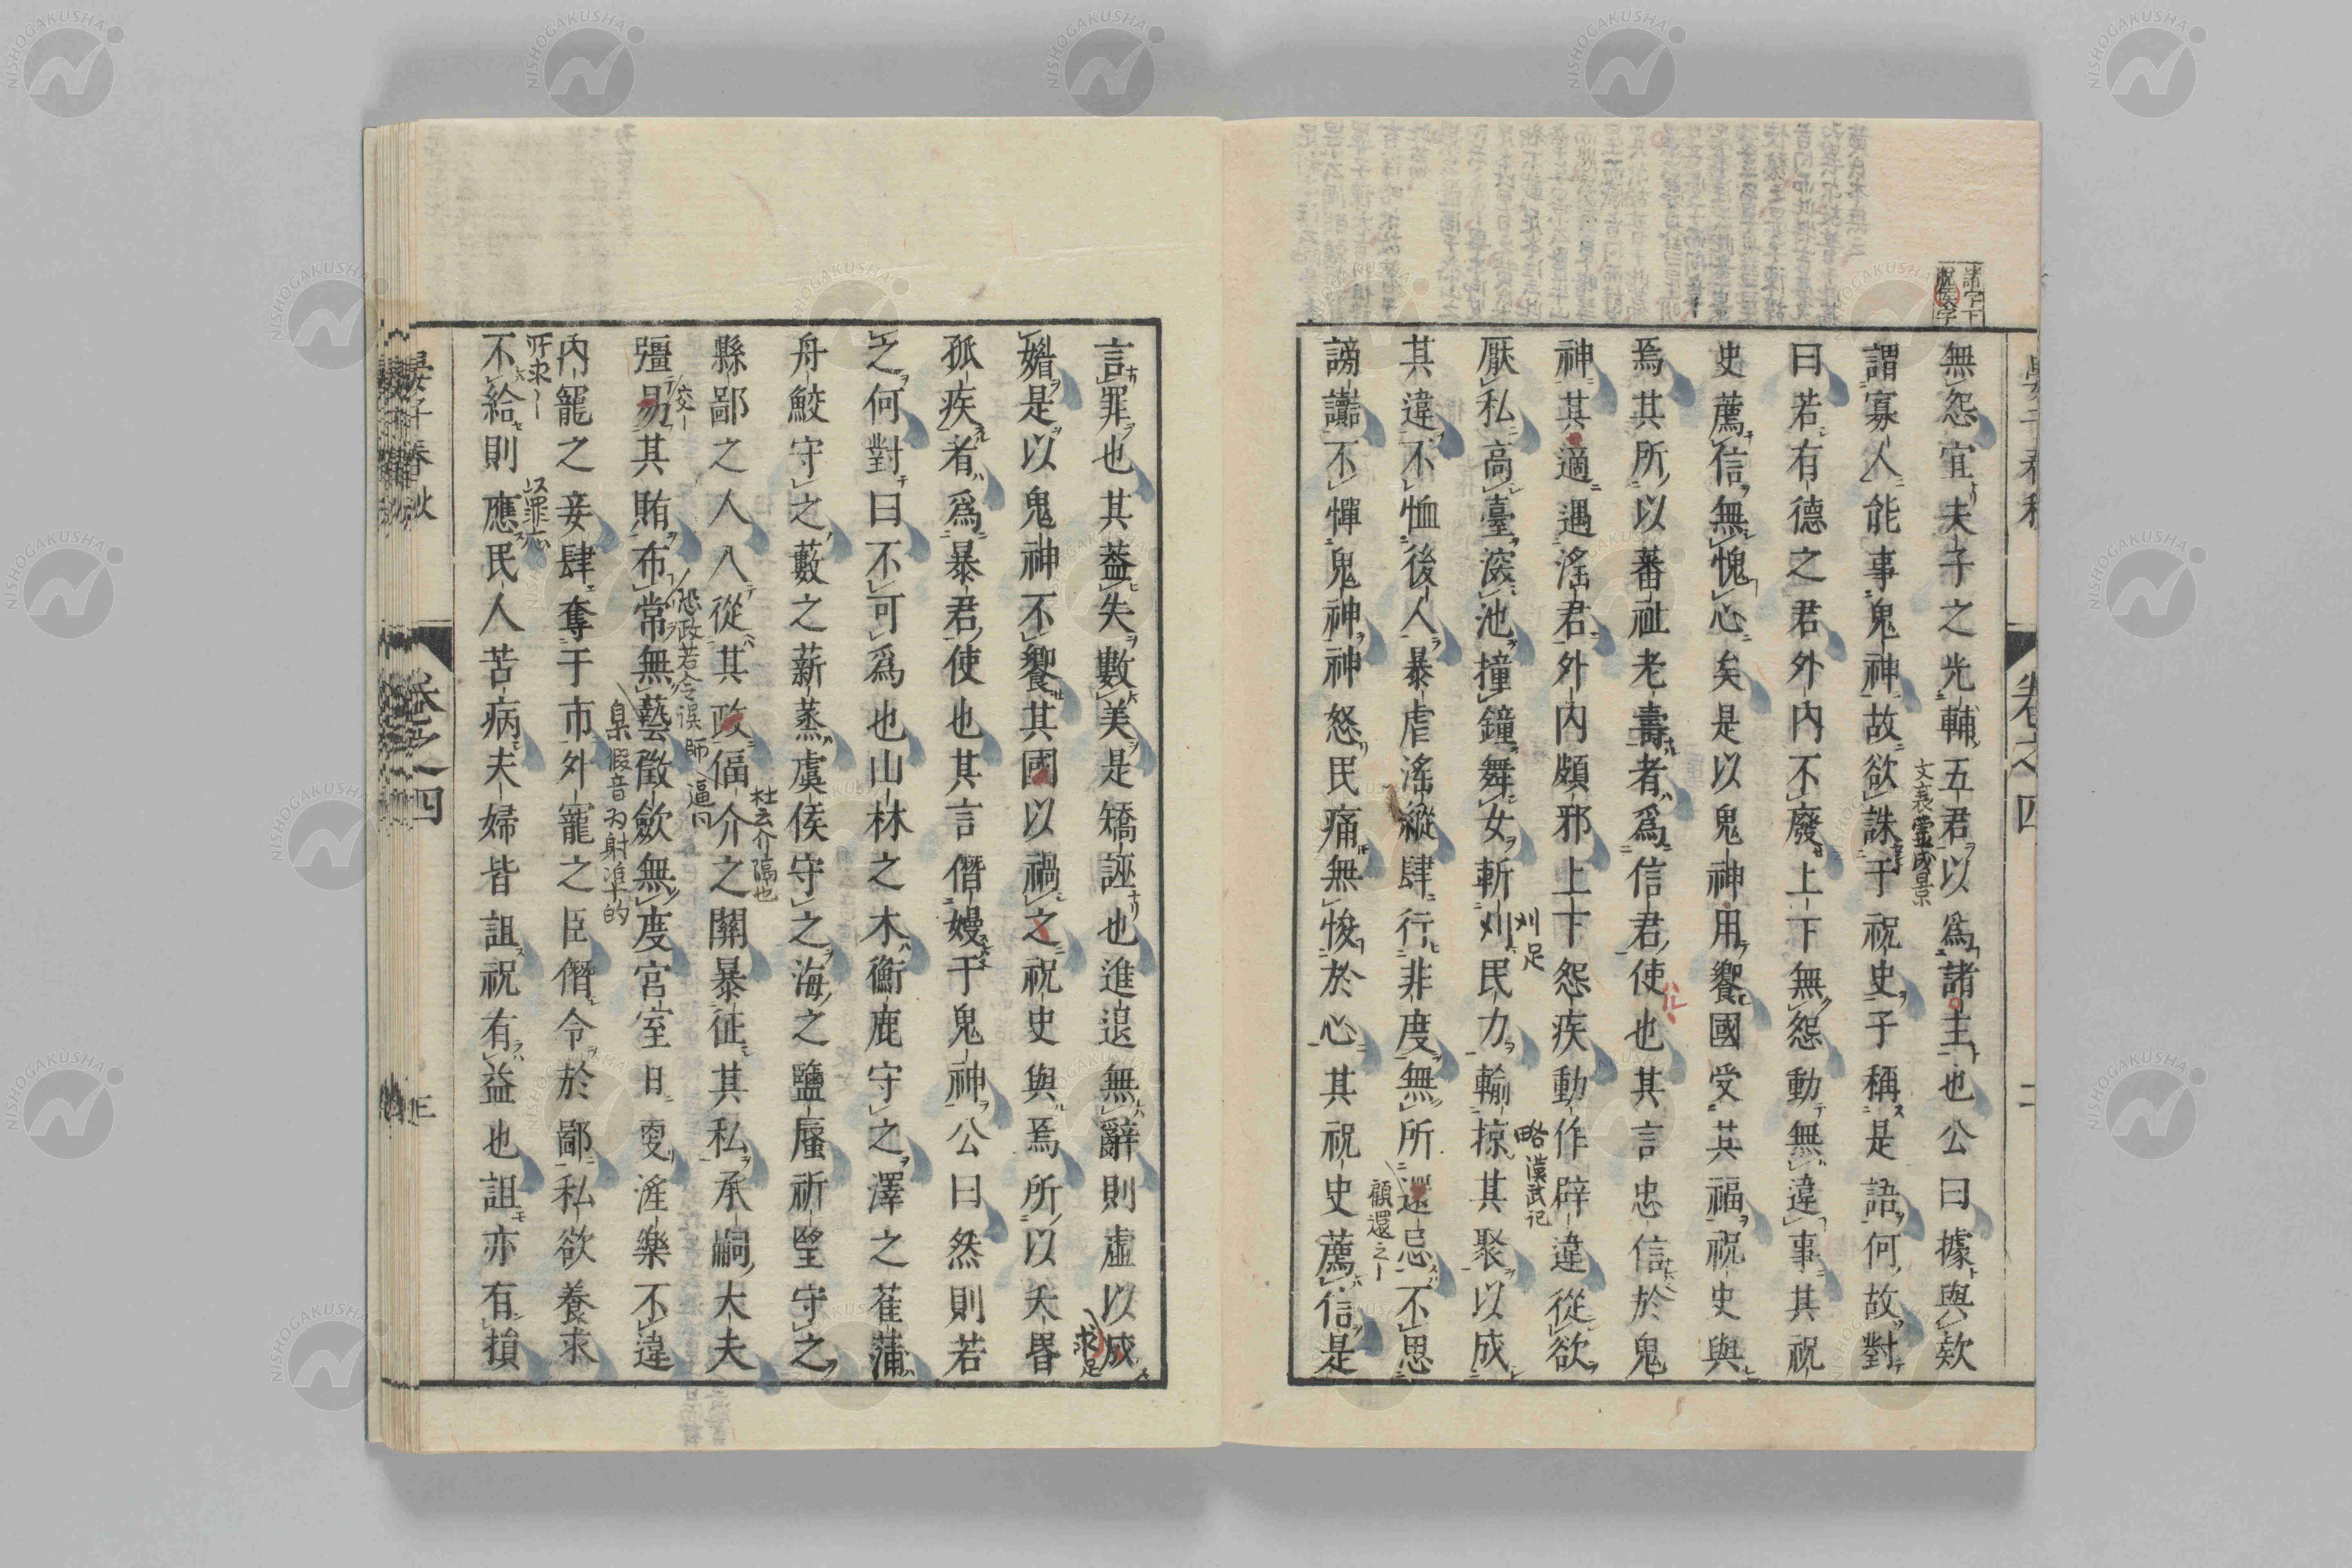 諸字下
脱侯字
無怨宜夫子之光輔五君以爲諸主也公曰據與欵
文襄靈成景
謂寡人能事鬼神故欲誅于祝史子稱是語何故對
曰若有德之君外内不廢上下無怨動無違事其祝
史薦信無愧心矣是以鬼神用饗國受其福祝史與
焉其所以蕃祉老壽者爲信君使也其言忠信於鬼
神其適遇淫君外内頗邪上下怨疾動作辟違從欲
厭私高臺深池撞鐘舞女斬刈民力輸掠其聚以成
刈足
略漢武記
其違不恤後人暴虐淫縱肆行非度無所還忌不思
顧還之
謗讟不憚鬼神神怒民痛無悛於心其祝史薦信是
言罪也其蓋失數美是矯誣也進退無辭則虛以成
求足
媚是以鬼神不饗其國以禍之祝史與焉所以夭昬
孤疾者爲暴君使也其言僭嫚于鬼神公曰然則若
之何對曰不可爲也山林之木衡鹿守之澤之萑蒲
舟鮫守之藪之薪蒸虞侯守之海之鹽蜃祈望守之
杜云介隔也
縣鄙之人入從其政偪介之關暴征其私承嗣大夫
恐政若令誤
逼同
彊易其賄布常無藝徵斂無度宮室日更淫樂不違
臬假音为射準的
内寵之妾肆奪于市外寵之臣僭令於鄙私欲養求
所求
以罪
不給則應民人苦病夫婦皆詛祝有益也詛亦有損
晏子春秋
卷之四